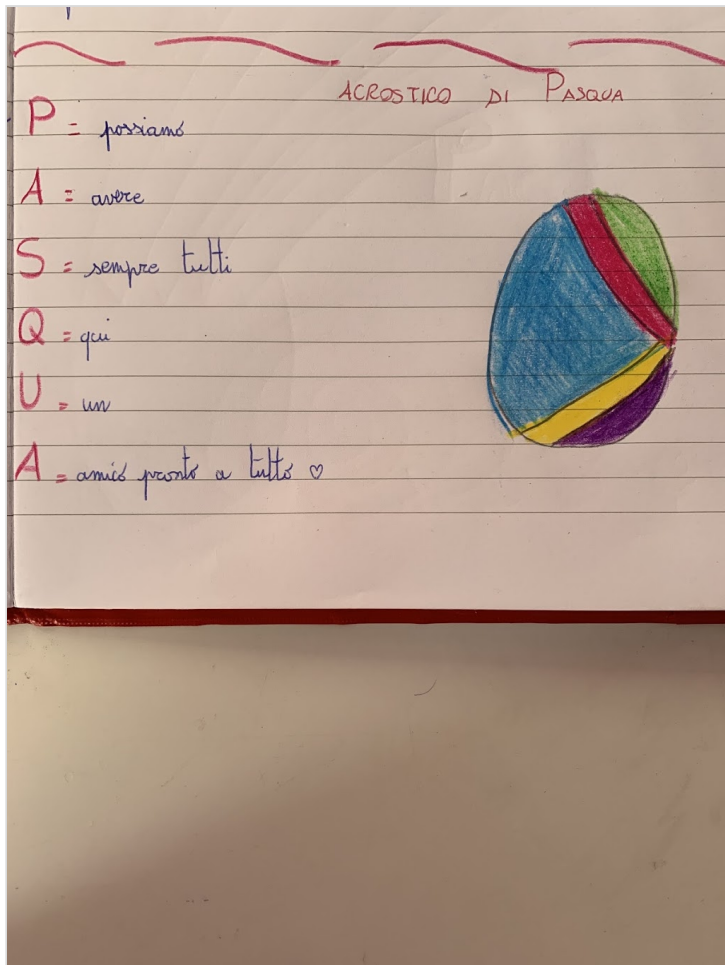 ACROSTICO DI PASQUA
P = possiamo
A = avere
S = sempre tutti
Q = qui
U = un
A = amico pronto a tutto ♡